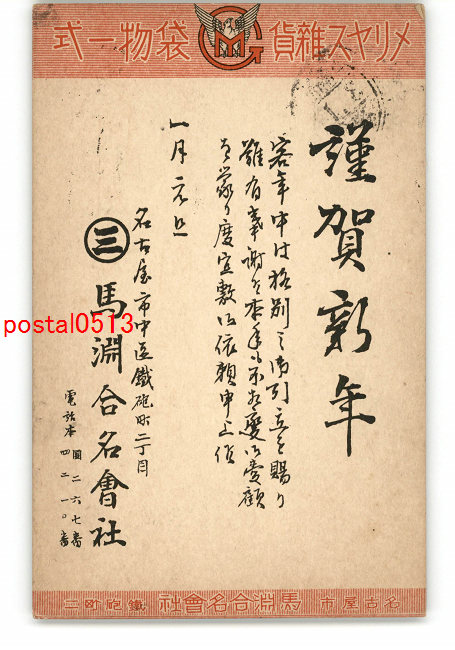 メリヤス雜貨 袋物一式
MG
謹賀新年
客年中は格別之御引立を賜り
難有奉謝候本年も不相變御愛顧
を蒙り度宜敷御依頼申上候
一月元旦
名古屋市中区鐵砲町二丁目
三 馬淵合名會社
電話本 圓二六七番
四二一〇番
名古屋市 馬淵合名會社 鐵砲町二
postal0513